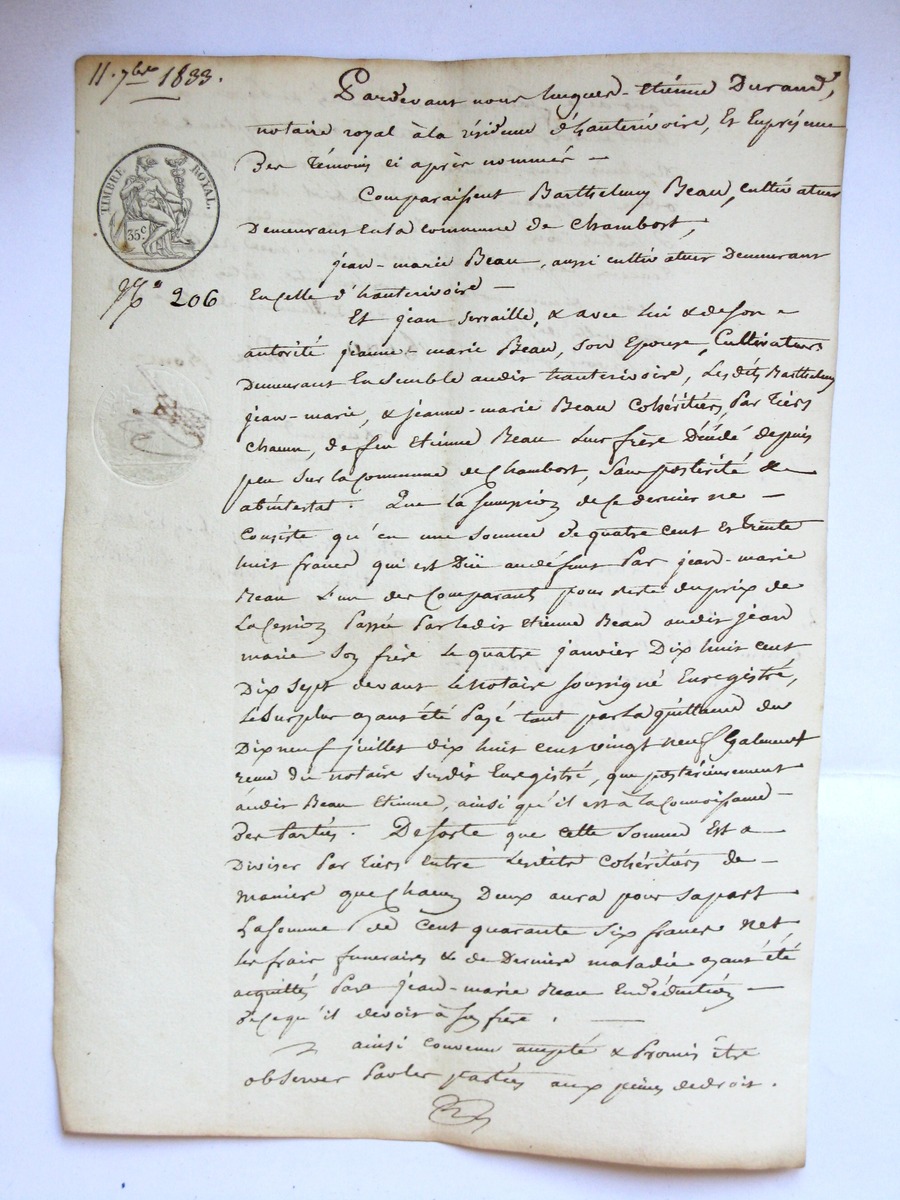 11. 7bre 1833.
Pardevant nous hugues-Etiénne Durand,
notaire royal à la résidence d'hauterivoire, Et En présence
Des Témoins ci après nommés —
TIMBRE ROYAL.
35 c.
N° 206
Comparaissent Barthelemy Beau, cultivateur
Demeurant En la commune de Chambost,
jean-marie Beau, aussi cultivateur Demeurant
En celle d'hauterivoire —
Et jean Serraille, & avec lui & de son
autorité jeanne-marie Beau, son Epouse, Cultivateurs
Demeurant Ensemble audit hauterivoire, Lesdits Barthelemy
jean-marie, & jeanne-marie Beau Cohéritiers, Par Tiers
Chacun, de feu Etienne Beau Leur frère Décédé depuis
peu Sur la Commune de Chambost, Sans postérité &
abintestat. Que la Succession de Ce dernier ne —
Consiste qu'en une Somme de quatre Cent Et Trente
huit francs qui est Düe au défunt Par jean-marie
Beau L'un des Comparants pour reste du prix de
La Cession Passée Par ledit Etienne Beau audit jean
marie Son frère Le quatre janvier Dix huit cent
Dix Sept devant le notaire Soussigné Enregistré,
Le Surplus ayant été Payé tant par la quittance du
Dix neuf juillet dix huit cent vingt neuf Egalement
reçue du notaire Susdit Enregistré, que postérieurement
audit Beau Etienne, ainsi qu'il est à la Connoissance —
Des Parties. De Sorte que cette Somme Est a
Diviser Par Tiers Entre Lesdits Cohéritiers de —
manière que Chacun Deux aura pour Sa part
La Somme de Cent quarante Six francs Net
Les frais funeraires & de Dernière maladie ayant été
acquittés Par jean-marie Beau En déduction —
de Ce qu'il devoit à Son frère. —
ainsi Convenu accepté & Promis être
observer Par les parties aux peines de droit.